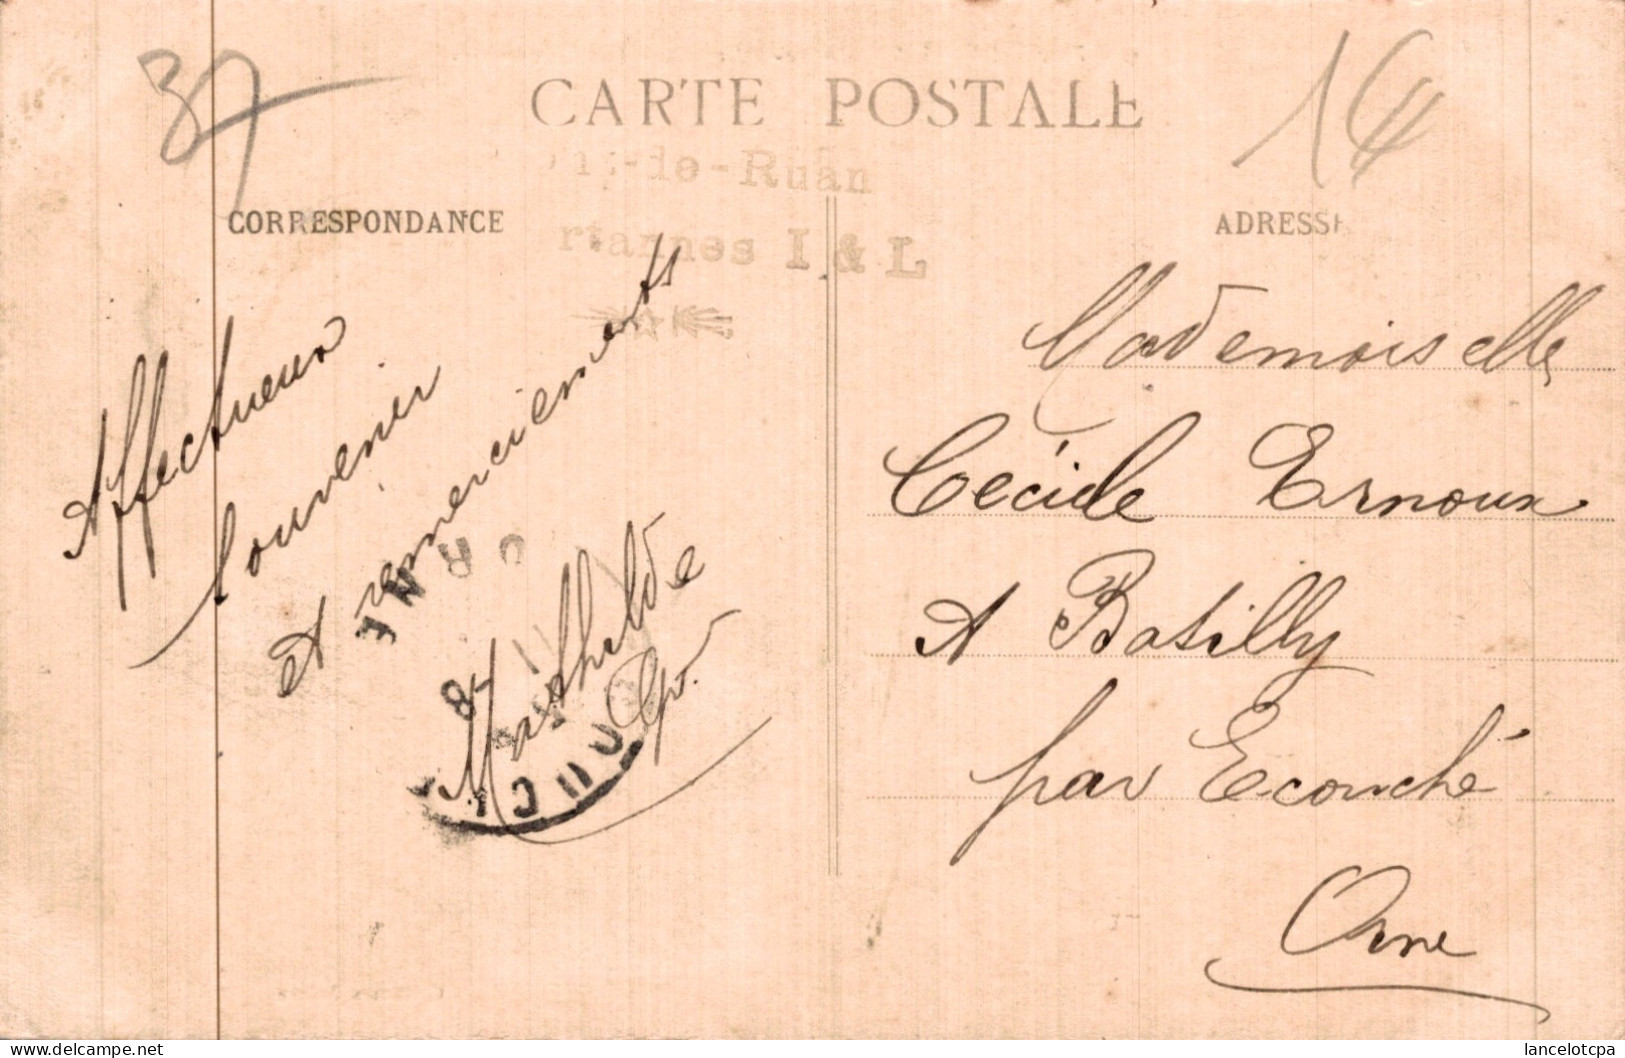 37
CARTE POSTALE
14
-de-Ruan
I & L
CORRESPONDANCE
ADRESSE
Affectueux
souvenir
et remerciements
Mathilde
Mademoiselle
Cécile Ernoux
A Batilly
par Ecouché
Orne
ORNE
lancelotcpa